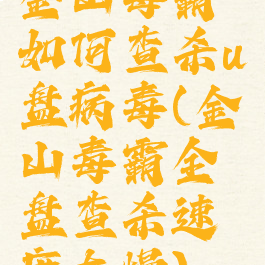 金山毒霸
如何查杀u
盘病毒(金
山毒霸全
盘查杀速
度太慢)